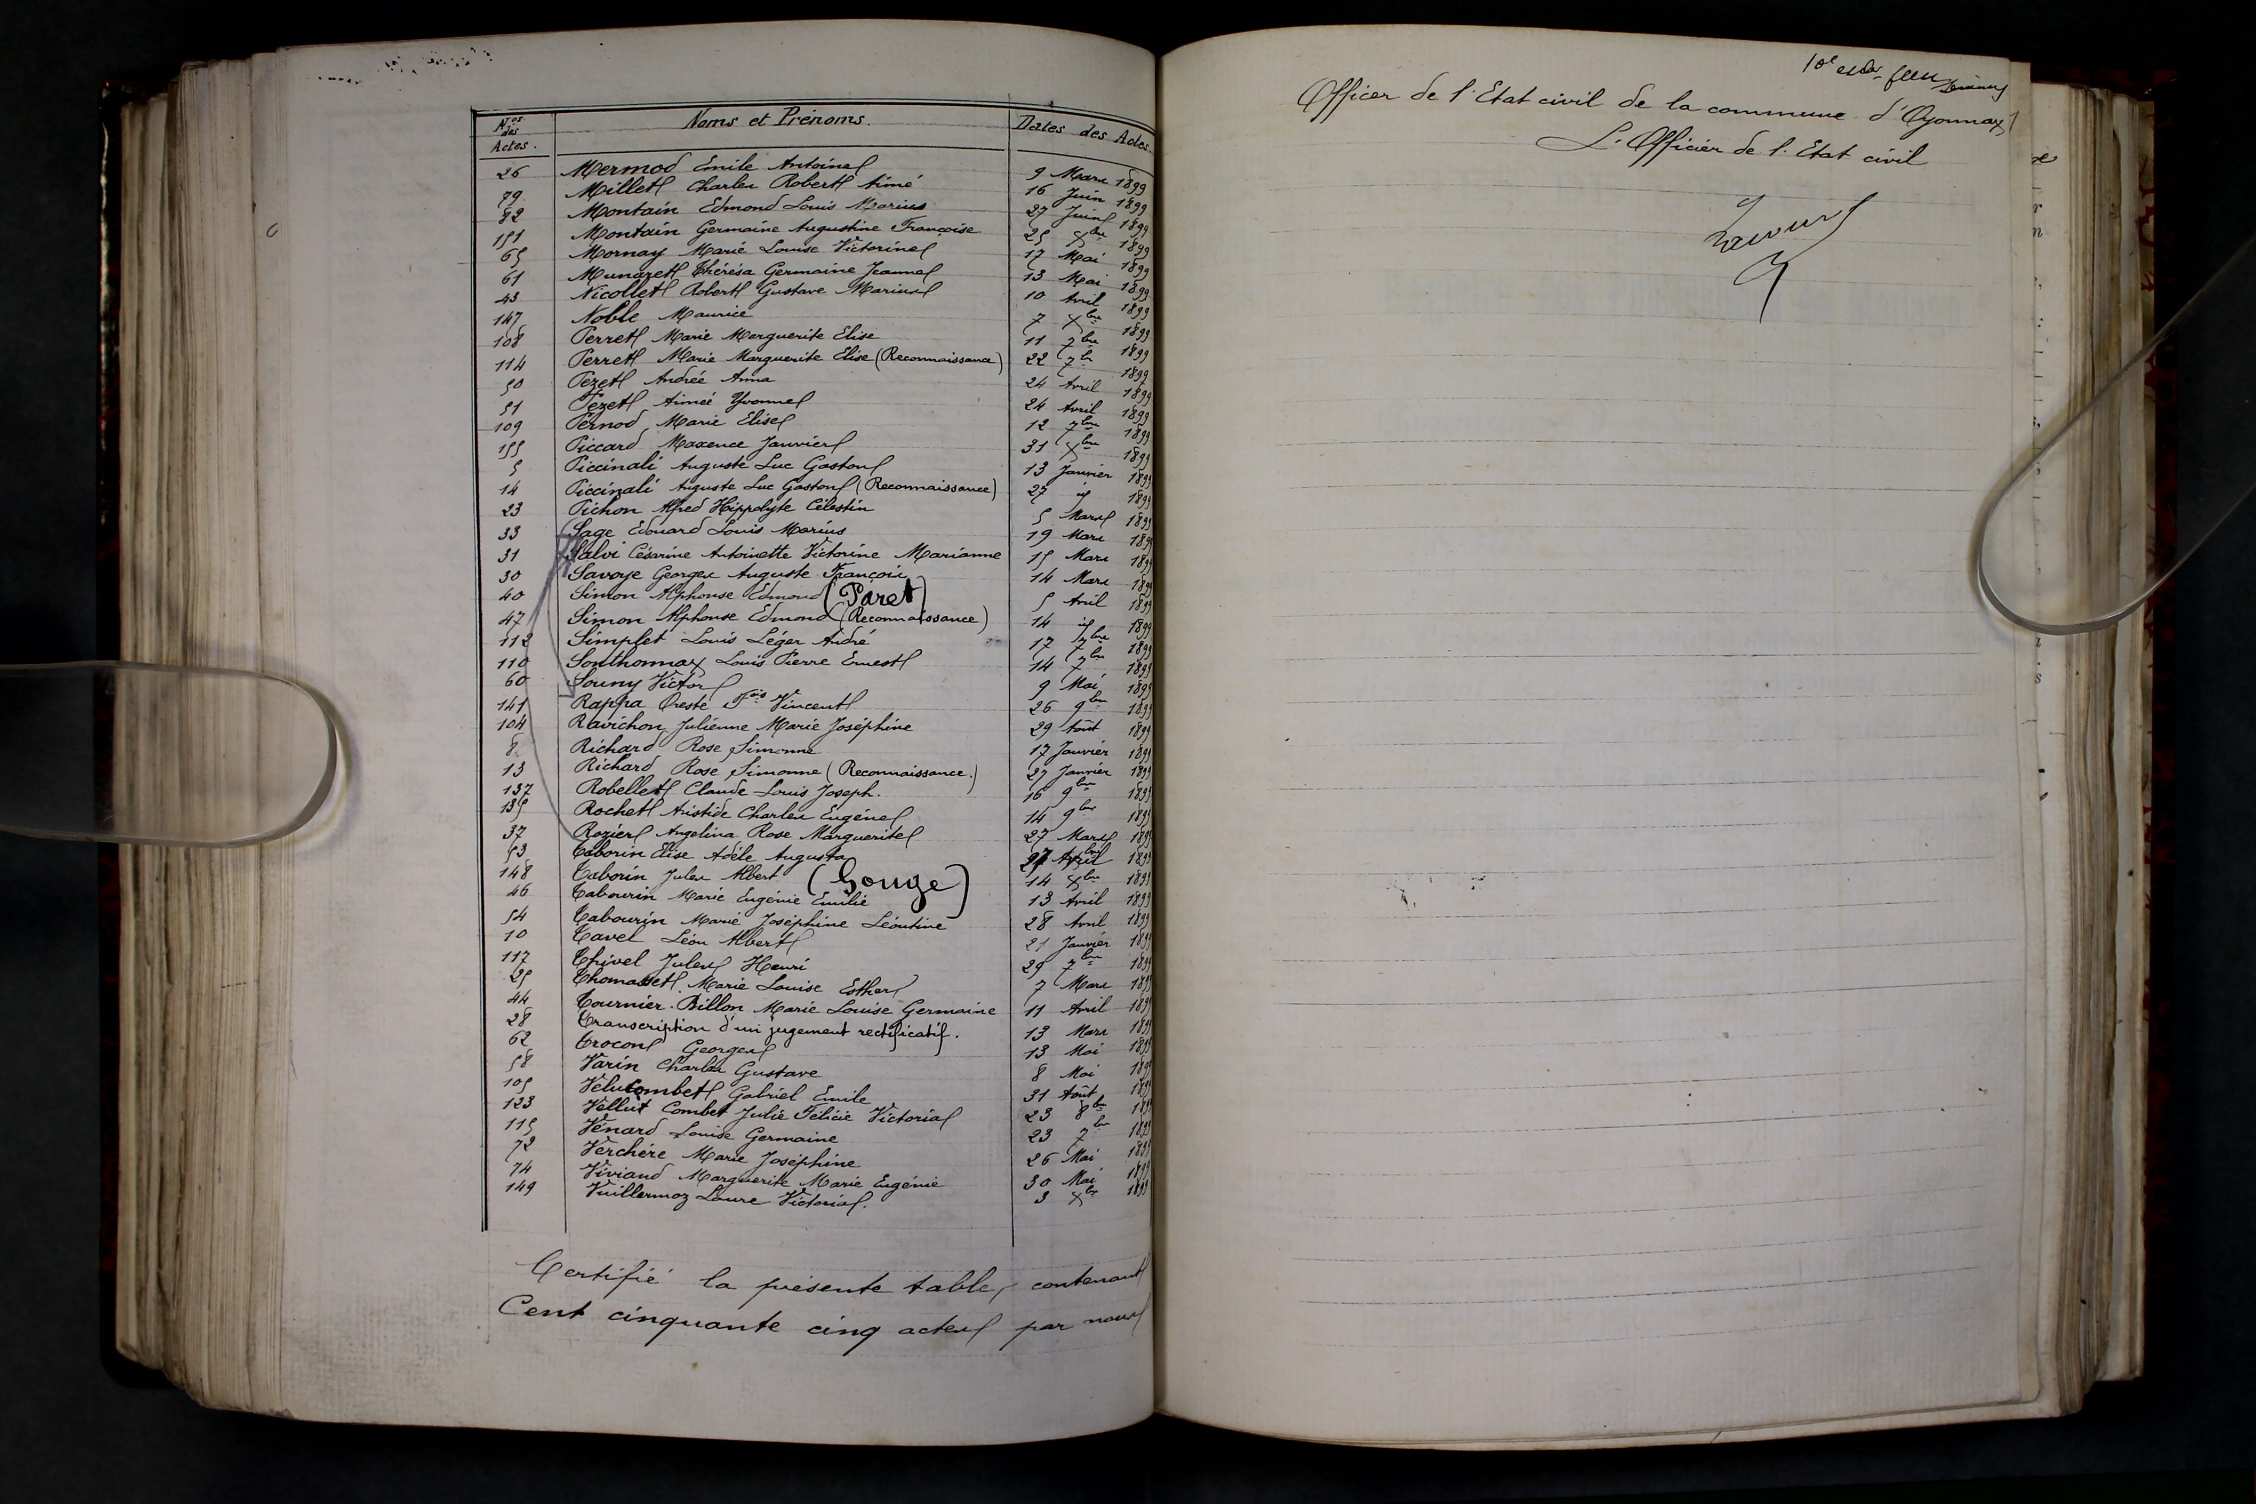 Nos des Actes. Noms et Prénoms. Dates des Actes.
26 Mermod Emile Antoine 9 Mars 1899
79 Millet Charles Robert Aimé 16 Juin 1899
82 Montain Edmond Louis Marius 27 Juin 1899
151 Montain Germaine Augustine Françoise 25 Xbre 1899
65 Mornay Marie Louise Victorine 17 Mai 1899
61 Munazet Thérèsa Germaine Jeanne 13 Mai 1899
43 Nicollet Robert Gustave Marius 10 Avril 1899
147 Noble Maurice 7 Xbre 1899
108 Perret Marie Marguerite Elise 11 7bre 1899
114 Perret Marie Marguerite Elise (Reconnaissance) 22 7bre 1899
50 Pezet Andrée Anna 24 Avril 1899
51 Pezet Aimée Yvonne 24 Avril 1899
109 Pernod Marie Elise 12 7bre 1899
155 Piccard Maxence Janvier 31 Xbre 1899
5 Piccinali Auguste Luc Gaston 13 Janvier 1899
14 Piccinali Auguste Luc Gaston (Reconnaissance) 27 id 1899
23 Pichon Alfred Hippolyte Célestin 5 Mars 1899
33 Sage Edouard Louis Marius 19 Mars 1899
31 Salvi Césarine Antoinette Victorine Marianne 15 Mars 1899
30 Savoye Georges Auguste François 14 Mars 1899
40 Simon Alphonse Edmond (Paret) 5 Avril 1899
47 Simon Alphonse Edmond (Reconnaissance) 14 id 1899
112 Simplet Louis Léger André 17 7bre 1899
110 Sonthonnax Louis Pierre Ernest 14 7bre 1899
60 Souny Victor 9 Mai 1899
141 Rappa Oreste Fois Vincent 26 9bre 1899
104 Ravichon Julienne Marie Joséphine 29 Août 1899
8 Richard Rose Simonne 17 Janvier 1899
13 Richard Rose Simonne (Reconnaissance.) 27 Janvier 1899
137 Robellet Claude Louis Joseph. 16 9bre 1899
135 Rochet Aristide Charles Eugène 14 9bre 1899
37 Rozier Angelina Rose Marguerite 27 Mars 1899
53 Taborin Elise Adèle Augusta 27 Avril 1899
148 Taborin Jules Albert 14 Xbre 1899
46 Tabourin Marie Eugénie Emilie (Gouge) 13 Avril 1899
54 Tabourin Marie Joséphine Léontine 28 Avril 1899
10 Tavel Léon Albert 21 Janvier 1899
117 Thivel Jules Henri 29 7bre 1899
25 Thomasset Marie Louise Esther 7 Mars 1899
44 Tournier-Billon Marie Louise Germaine 11 Avril 1899
28 Transcription d'un jugement rectificatif. 13 Mars 1899
62 Trocon Georges 13 Mai 1899
58 Varin Charles Gustave 8 Mai 1899
105 Vélutcombet Gabriel Emile 31 Août 1899
123 Vellut Combet Julie Félicie Victoria 23 8bre 1899
115 Vénard Louise Germaine 23 7bre 1899
72 Verchère Marie Joséphine 26 Mai 1899
74 Viviand Marguerite Marie Eugénie 30 Mai 1899
149 Vuillermoz Laure Victoria. 3 Xbre 1899
Certifié la présente table, contenant
Cent cinquante cinq actes par nous
Officier de l'Etat civil de la commune d'Oyonnax
L'Officier de l'Etat civil